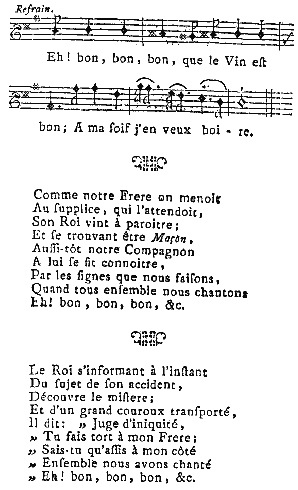 Refrain.
Eh! bon, bon, bon, que le Vin eſt
bon; A ma ſoif j'en veux boi - re.
Comme notre Frere on menoit
Au ſupplice, qui l'attendoit,
Son Roi vint à paroitre;
Et ſe trouvant être Maçon,
Auſſi-tôt notre Compagnon
A lui ſe fit connoitre,
Par les ſignes que nous faiſons,
Quand tous enſemble nous chantons
Eh! bon, bon, bon, &c.
Le Roi s'informant à l'inſtant
Du ſujet de ſon accident,
Découvre le miſtere;
Et d'un grand couroux tranſporté,
Il dit: „ Juge d'iniquité,
„ Tu fais tort à mon Frere;
„ Sais-tu qu'aſſis à mon côté
„ Enſemble nous avons chanté
„ Eh! bon, bon, bon, &c.